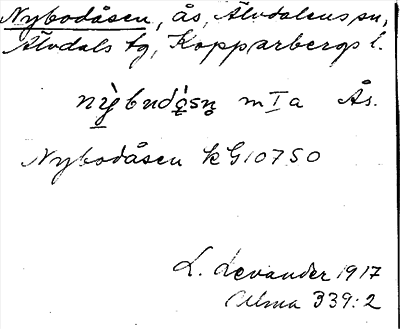 Nybodåsen, ås, Älvdalens sn,
Älvdals tg, Kopparbergs l.
nỳ̠budǫ̀sn̥ m I a Ås.
Nybodåsen k G10750
L. Levander 1917
Ulma 339:2